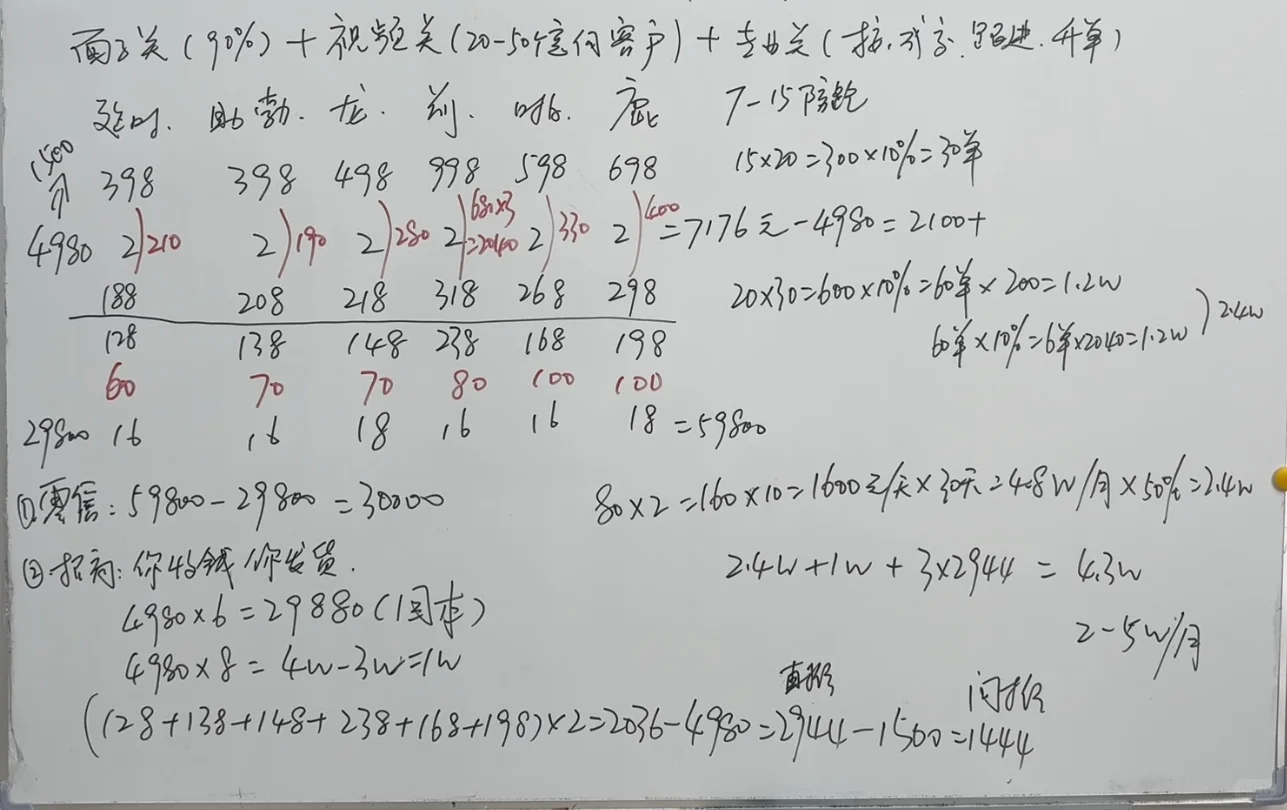 面子关(90%)+视频关(20-50个意向客户)+专业关(接、成交、跟进、开单)
延时. 助勃. 龙. 剂. 时. 鹿 7-15阶段
1500 398 398 498 998 598 698 15×20=300×10%=30单
4980 2)210 2)190 2)280 2)680×3=2040 2)330 2)400 =7176元-4980=2100+
188 208 218 318 268 298 20×30=600×10%=60单×200=1.2w
128 138 148 238 168 198 60单×10%=6单×2040=1.2w )2.4w
60 70 70 80 100 100
29800 16 16 18 16 16 18 =59800
①零售:59800-29800=30000 80×2=160×10=1600元/天×30天=4.8W/月×50%=2.4w
②招商:你收钱你发货. 2.4W+1W+3×2944=4.3w
4980×6=29880(回本) 2-5W/月
4980×8=4W-3W=1W
直推 间推
(128+138+148+238+168+198)×2=2036-4980=2944-1500=1444